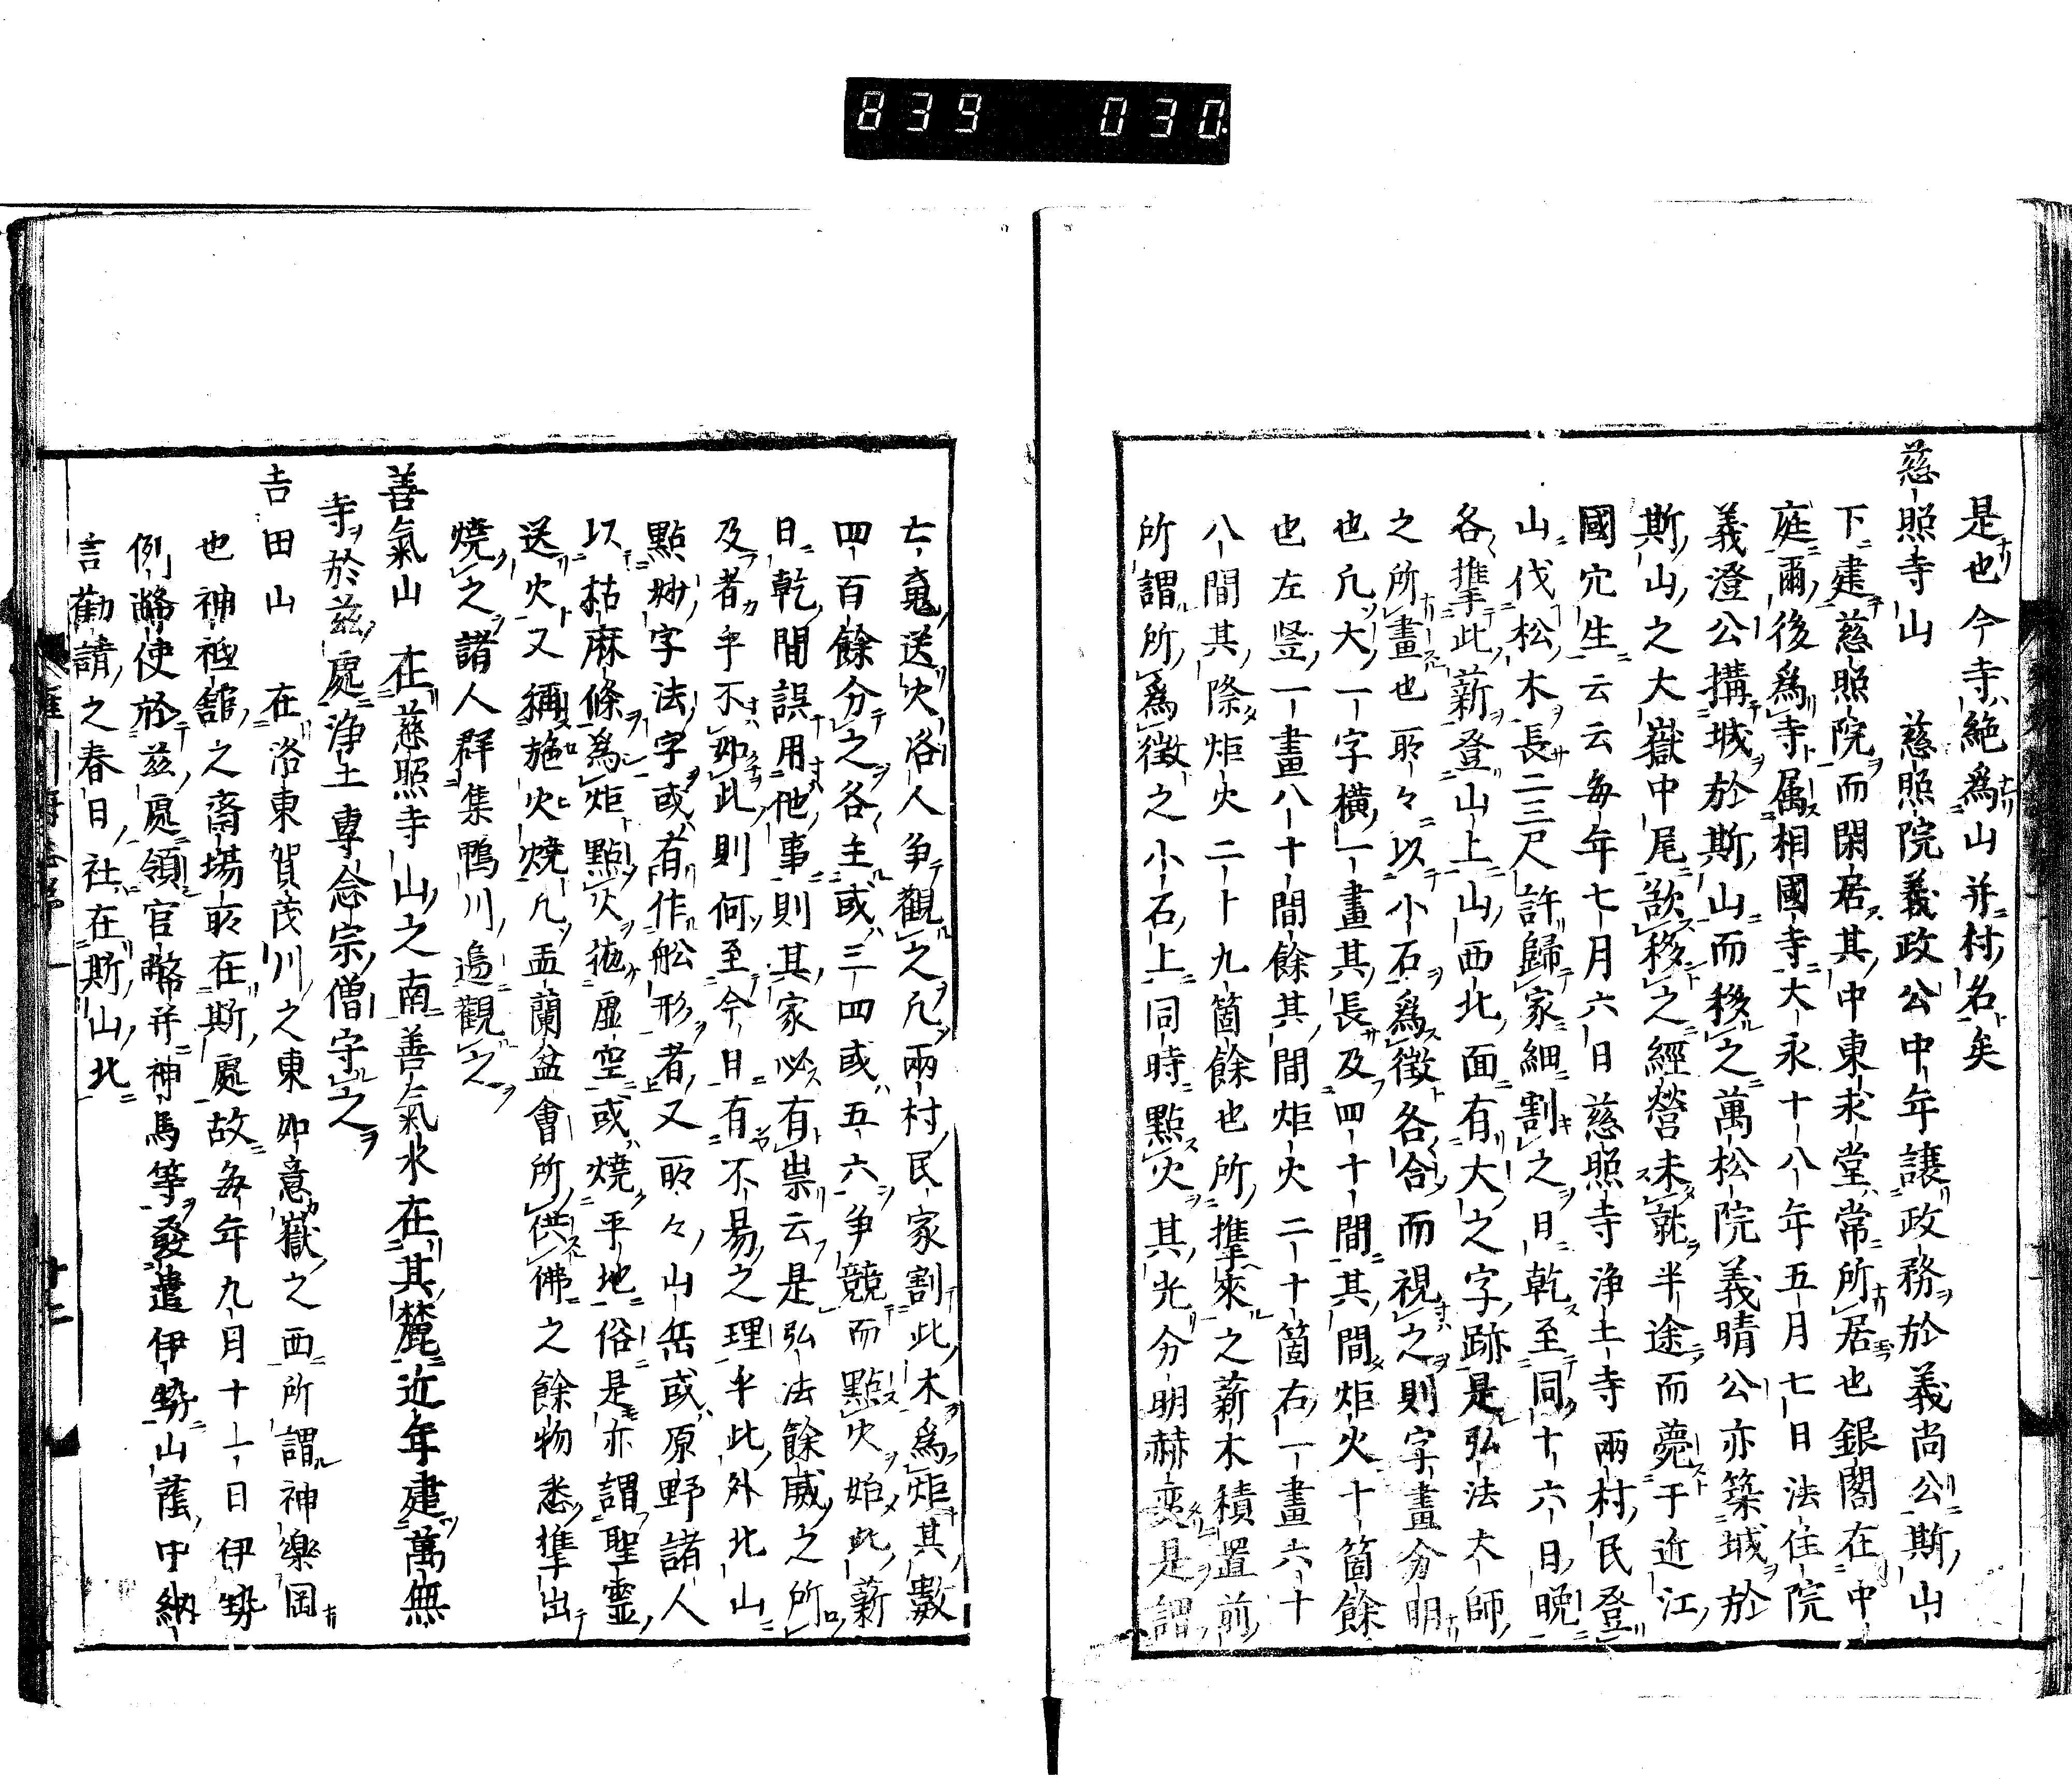 839 030
是也今寺絶爲山并村名矣
慈照寺山 慈照院義政公中年讓政務於義尚公斯山
下建慈照院而閑居其中東求堂常所居也銀閣在中
庭爾後爲寺属相國寺大永十八年五月七日法住院
義澄公搆城於斯山而移之萬松院義晴公亦築城於
斯山之大嶽中尾欲移之經營未就半途而薨于近江
國穴生云云毎年七月六日慈照寺浄土寺兩村民登
山伐松木長二三尺許歸家細割之日乾至同十六日晩
各携此薪登山上山西北面有大之字跡是弘法大師
之所畫也耶々以小石爲徴各合而視之則字畫分明
也凡大一字横一畫其長及四十間其間炬火十箇餘
也左竖一畫八十間餘其間炬火二十箇右一畫六十
八間其際炬火二十九箇餘也所携來之薪木積置前
所謂所爲徴之小石上同時點火其光分明赫奕是謂
亡䰟送火洛人争觀之凡兩村民家割此木爲炬其數
四百餘分之各主或三四或五六争競而點火始此薪
日乾間誤用他事則其家必有祟云是弘法餘威之所
及者乎不如此則何至今日有不易之理乎此外北山
點妙字法字或有作舩形者又耶々山岳或原野諸人
以枯麻條爲炬點火抛虚空或燒平地俗是亦謂聖靈
送火又稱施火燒凡盂蘭盆會所供佛之餘物悉携出
燒之諸人群集鴨川邉觀之
善氣山 在慈照寺山之南善氣水在其麓近年建萬無
寺於茲處浄土専念宗僧守之
吉田山 在洛東賀茂川之東如意嶽之西所謂神樂岡
也神祇舘之齋場耶在斯處故毎年九月十一日伊勢
例幣使於茲處領官幣并神馬等發遣伊勢山蔭中納
言勸請之春日社在斯山北